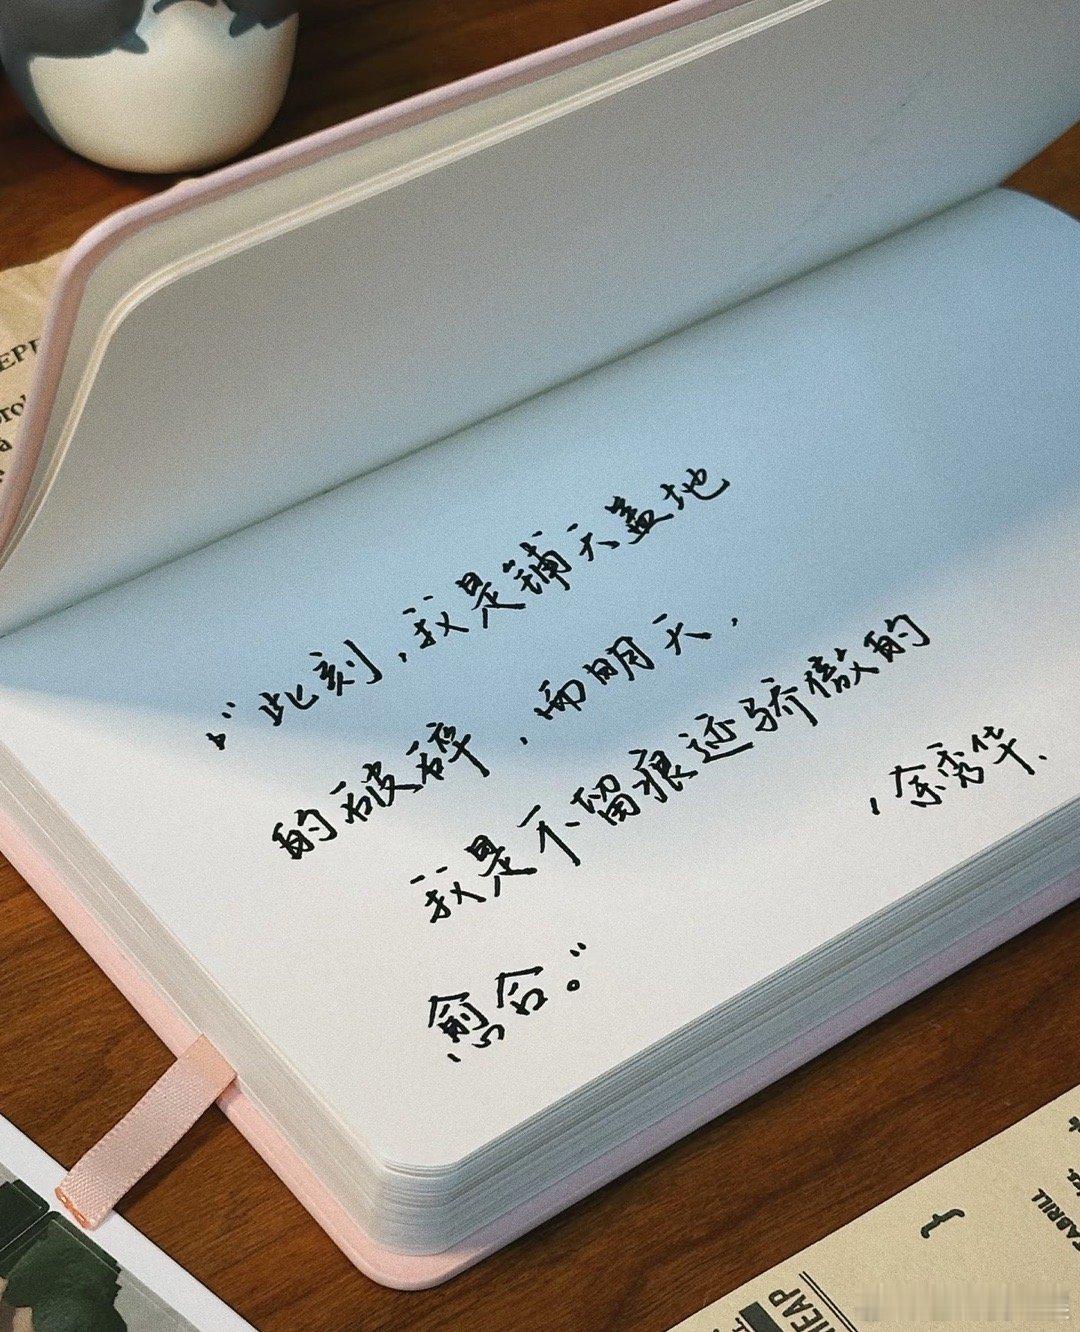 “此刻，我是铺天盖地
的破碎，而明天，
我是不留痕迹骄傲的
愈合。”
，余秀华.
EPI
HEAP
FABRILL